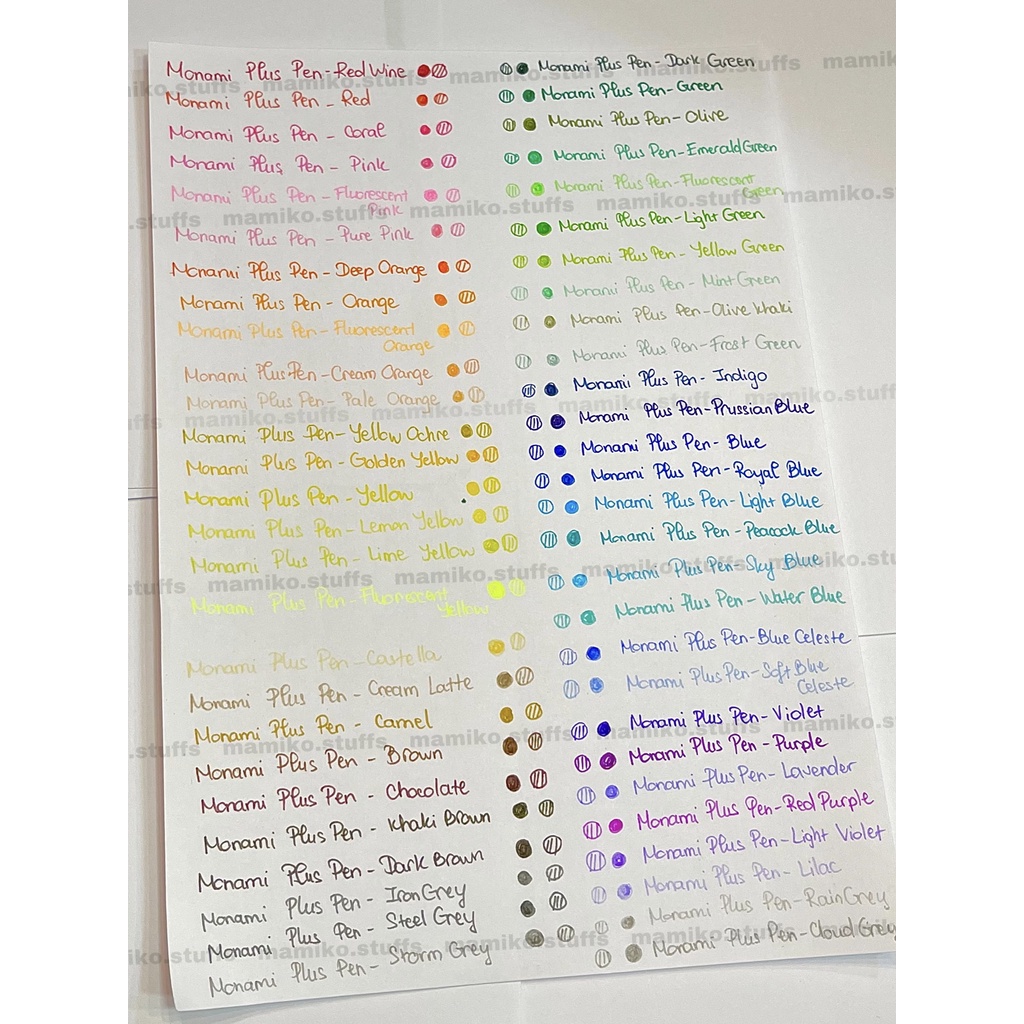 Monami Plus Pen - Red Wine
Monami Plus Pen - Red
Monami Plus Pen - Coral
Monami Plus Pen - Pink
Monami Plus Pen - Fluorescent
Pink
Monami Plus Pen - Pure Pink
Monami Plus Pen - Deep Orange
Monami Plus Pen - Orange
Monami Plus Pen - Fluorescent
Orange
Monami Plus Pen - Cream Orange
Monami Plus Pen - Pale Orange
Monami Plus Pen - Yellow Ochre
Monami Plus Pen - Golden Yellow
Monami Plus Pen - Yellow
Monami Plus Pen - Lemon Yellow
Monami Plus Pen - Lime Yellow
Monami Plus Pen - Fluorescent
Yellow
Monami Plus Pen - Castella
Monami Plus Pen - Cream Latte
Monami Plus Pen - Camel
Monami Plus Pen - Brown
Monami Plus Pen - Chocolate
Monami Plus Pen - Khaki Brown
Monami Plus Pen - Dark Brown
Monami Plus Pen - Iron Grey
Monami Plus Pen - Steel Grey
Monami Plus Pen - Storm Grey
Monami Plus Pen - Dark Green
Monami Plus Pen - Green
Monami Plus Pen - Olive
Monami Plus Pen - Emerald Green
Monami Plus Pen - Fluorescent
Green
Monami Plus Pen - Light Green
Monami Plus Pen - Yellow Green
Monami Plus Pen - Mint Green
Monami Plus Pen - Olive Khaki
Monami Plus Pen - Frost Green
Monami Plus Pen - Indigo
Monami Plus Pen - Prussian Blue
Monami Plus Pen - Blue
Monami Plus Pen - Royal Blue
Monami Plus Pen - Light Blue
Monami Plus Pen - Peacock Blue
Monami Plus Pen - Sky Blue
Monami Plus Pen - Water Blue
Monami Plus Pen - Blue Celeste
Monami Plus Pen - Soft Blue
Celeste
Monami Plus Pen - Violet
Monami Plus Pen - Purple
Monami Plus Pen - Lavender
Monami Plus Pen - Red Purple
Monami Plus Pen - Light Violet
Monami Plus Pen - Lilac
Monami Plus Pen - Rain Grey
Monami Plus Pen - Cloud Grey
mamiko.stuffs